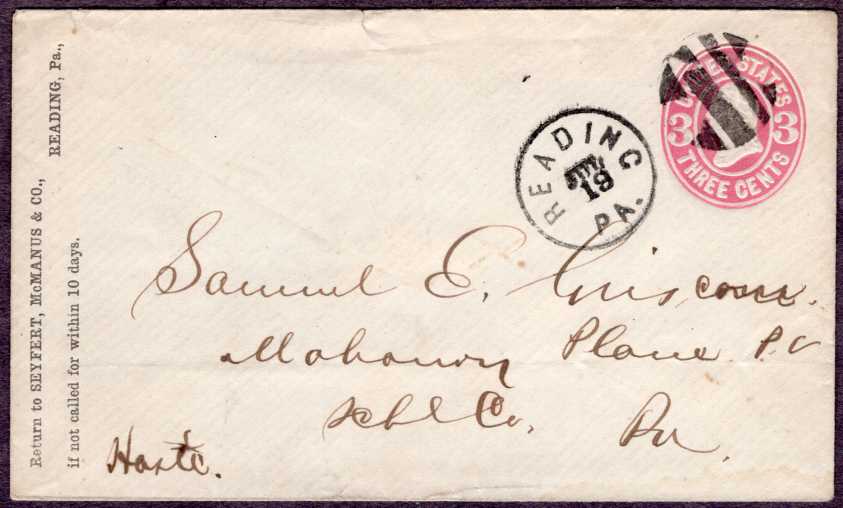 Return to SEYFERT, McMANUS & CO., READING, Pa.,
if not called for within 10 days.
UNITED STATES
3 3
THREE CENTS
READING
19
PA.
Samuel E. Griscom.
Mahanoy Plane P.O
Schl Co,
Pa
Haste.